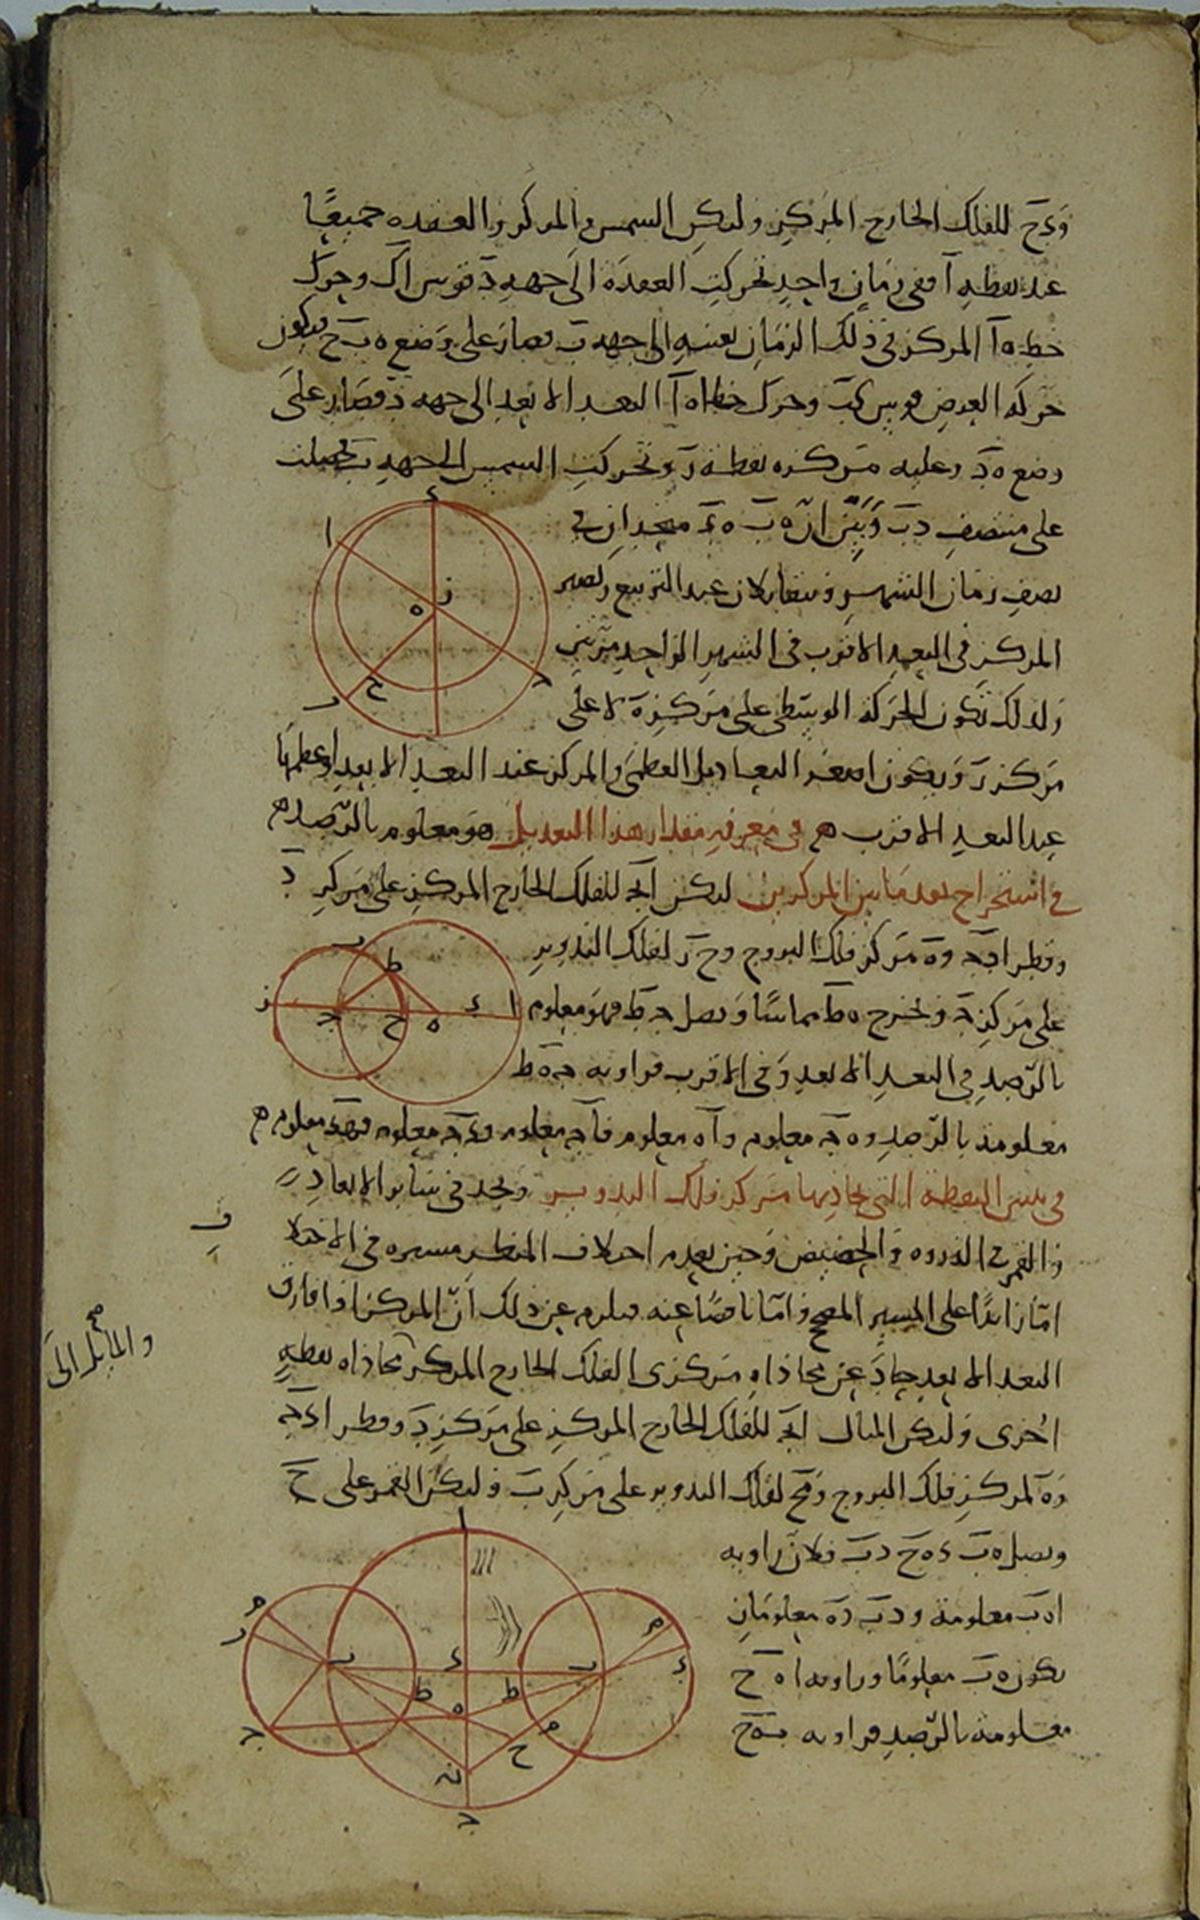 وَدَح للفلك الخارج المركز ولتكن الشمس والمركز والعقده جميعًا
عند نقطه آ ففى زمان واحد تحركت العقدة الى جهه دَ قوس اك وحرك
خط ه آ المركز فى ذلك الزمان بعينه الى جهه ب فصار على وضع ه ب ح فيكون
حركه العرض قوس كب وحرك خط اه آ البعد الابعد الى جهه دَ فصار على
وضع ه دَ وعليه مركزه نقطه رَ وتحركت الشمس الى جهه ب فحصلت
على منتصف دب وَبَيّن انّ ه ب ه دَ متحدان فى
نصف زمان الشهر ويتقابلان عند التربيع ويصير
المركز فى البعد الاقرب فى الشهر الواحد مرتين
ولذلك تكون الحركه الوسطى على مركز ه لا على
مركز رَ ويكون اصغر التعاديل العظمى والمركز عند البعد الابعد واعظمها
عند البعد الاقرب ه فى معرفه مقدار هذا التعديل هو معلوم بالرصد ه
فى استخراج بعد ما بين المركزين ليكن ابج للفلك الخارج المركز على مركز دَ
وقطر ادج وه مركز فلك البروج وح ز لفلك التدوير
على مركز ج ونخرج ه ط مماسًا ونصل ج ط فهو معلوم
بالرّصد فى البعد الابعد وفى الاقرب فزاويه ج ه ط
معلومة بالرّصد و ه ج معلوم و آه معلوم فآج معلوم ودج معلوم فه د معلوم ه
فى تبيين النقطة التى يحاذيها مركز فلك التدوير ونجد فى سائر الابعاد
والقمر فى الذروه والحضيض وحين يعدم اختلاف المنظر مسيره فى الاختلا
ف
امّا زائدًا على المسير المصحح وامّا ناقصًا عنه فيلزم عن ذلك انّ المركز اذا فارق
البعد الابعد حاد عن محاذاه مركزى الفلك الخارج المركز محاذاه نقطه
والمايل الى
صح
اخرى وليكن المثال ابج للفلك الخارج المركز على مركز دَ وقطر ادج
وه لمركز فلك البروج و مح لفلك التدوير على مركز ب وليكن القمر على ح
ونصل ه ب ه ح دب فلانّ زاويه
ادب معلومة و دب ده معلومان
يكون ه ب معلومًا وزاويه ا ه ح
معلومة بالرّصد فزاويه ب ه ح